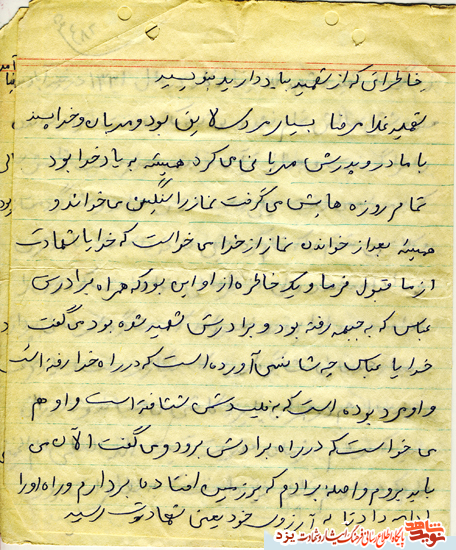 خاطراتی که از شهید بیاد دارید بنویسید
شهید غلامرضا بسیار مردی لایق بود و مهربان و خداپسند
با مادر و پدرش مهربانی می کرد همیشه به یاد خدا بود
تمام روزه هایش می گرفت نماز را سنگین می خواند و
همیشه بعد از خواندن نماز از خدا می خواست که خدایا شهادت
از ما قبول فرما و یک خاطره از او این بود که همراه برادرش
عباس که به جبهه رفته بود و برادرش شهید شده بود می گفت
خدایا عباس چه شانسی آورده است که در راه خدا رفته است
و او مرد بوده است که به شتافته است و او هم
می خواست که در راه برادرش برود و می گفت الآن می
باید بروم و اسلحه برادرم که بر زمین افتاده بردارم و راه او را
ادامه داد تا به آرزوی خود یعنی شهادت رسید
شاهد
نوید
پایگاه اطلاع رسانی فرهنگ ایثار و شهادت یزد